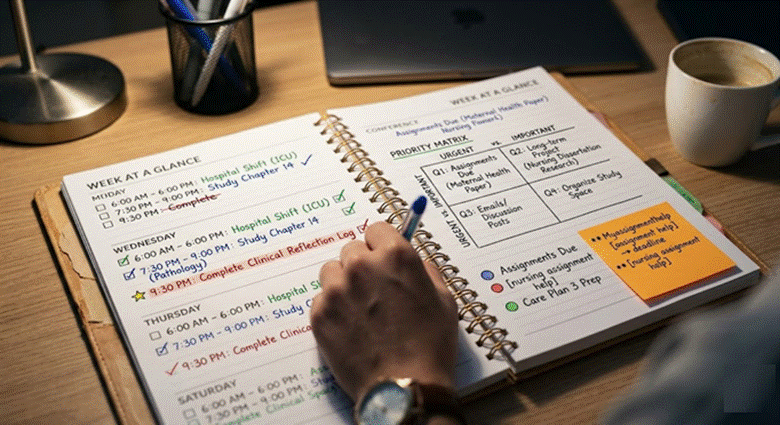 WEEK AT A GLANCE
6:00 AM – 6:00 PM: Hospital Shift (ICU)
7:30 PM – 9:00 PM: Study Chapter 14
9:30 PM: Complete
WEDNESDAY
6:00 AM – 6:00 PM: Hospital Shift (ICU)
7:30 PM – 9:00 PM: Study Chapter 14
(Pathology)
9:30 PM: Complete Clinical Reflection Log
THURSDAY
6:00 AM – 6:00 PM: Hospital
7:30 PM – 9:00 PM: Study
9:30 PM: Complete Clinical
SATURDAY
6:00 AM – 6:00 PM:
7:30 PM – 9:00 PM:
Complete Clinical
WEEK AT A GLANCE
CONFERENCE
Assignments Due (Maternal Health Paper)
Nursing
PRIORITY MATRIX
URGENT vs. IMPORTANT
URGENT vs IMPORTANT
Q1: Assignments
Due
(Maternal Health
Paper)
Q2: Long-term
Project
(Nursing Dissertation
Research)
Q3: Emails/
Discussion
Posts
Q4: Organize Study
Space
Assignments Due
[nursing assignment
help]
Care Plan 3 Prep
Myassignmenthelp
[assignment help]
→ deadline
[nursing assignment
help]